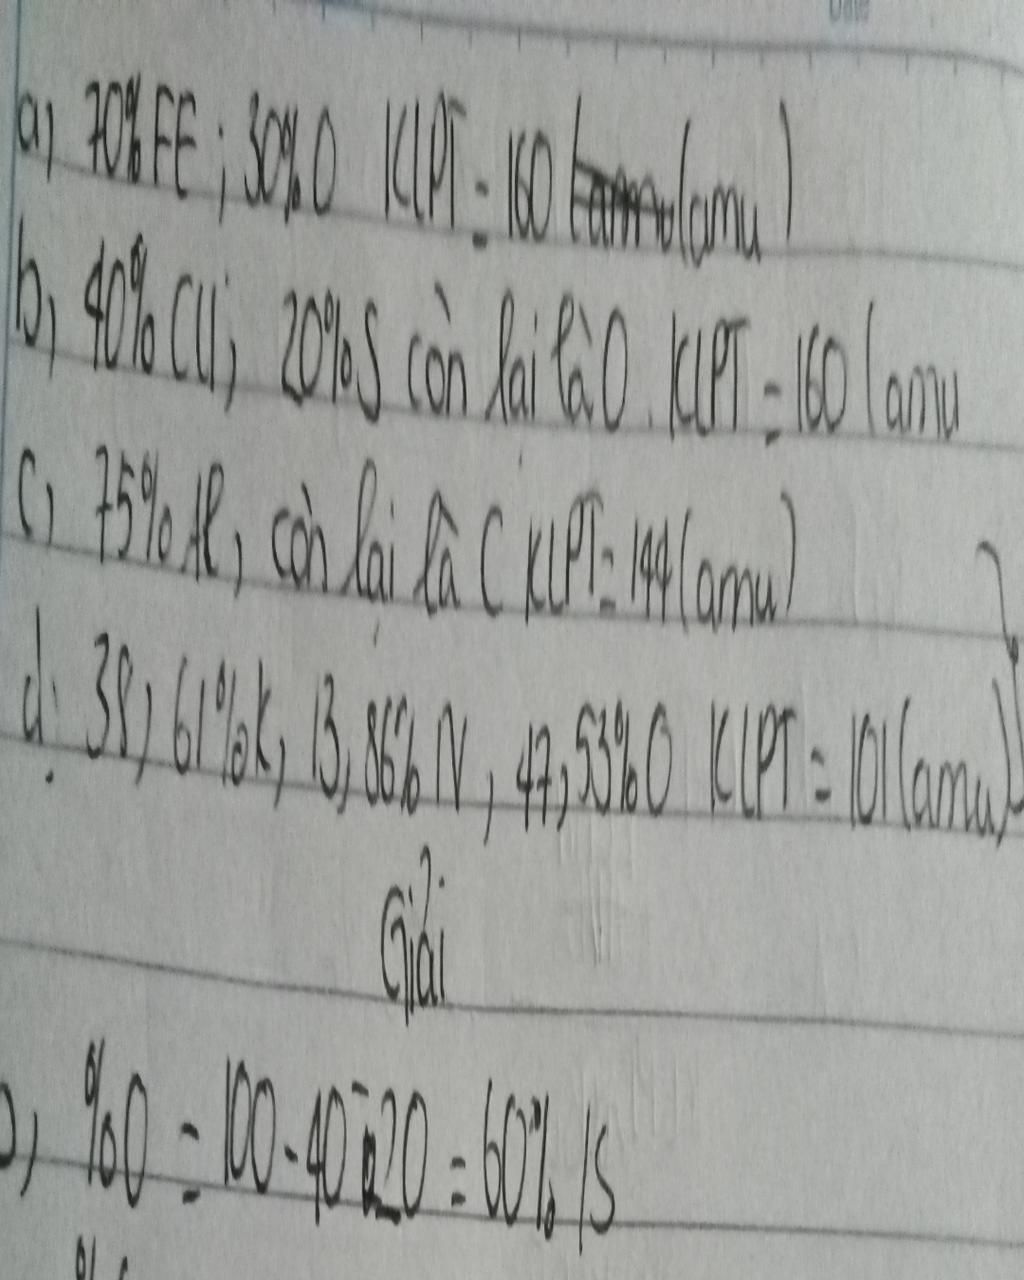 Date
a) 70% FE ; 30% O KLPT = 160 (amu)
b) 40% CU; 20% S còn lại là O. KLPT = 160 (amu
c) 75% Al, còn lại là C KLPT = 144 (amu)
d. 38,61% K, 13,86% N, 47,53% O KLPT = 101 (amu)
Giải
b, % O = 100 - 40 - 20 = 60%